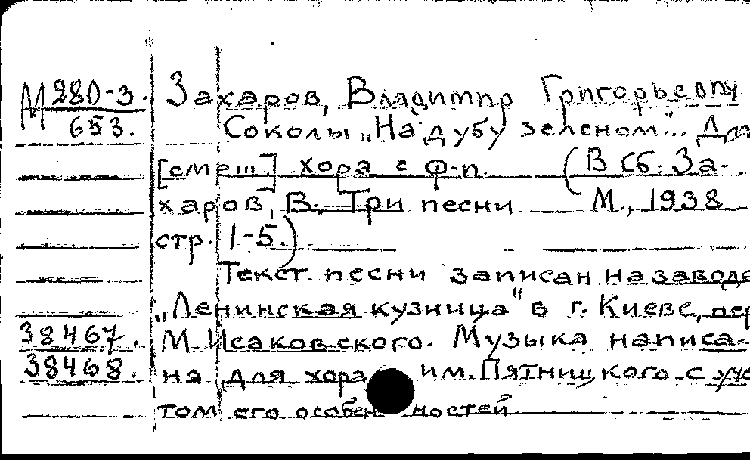 М 280-3. Захаров, Владимир Григорьевич
653. Соколы „На дубу зеленом"... Для
[смеш.] хора с ф-п. (В сб. За-
харов, В. Три песни М., 1938
стр. 1-5.)
Текст песни записан на заводе
„Ленинская кузница" в г. Киеве, пер
38467. М. Исаковского. Музыка написа-
38468. на для хора им. Пятницкого с уче
том его особенностей